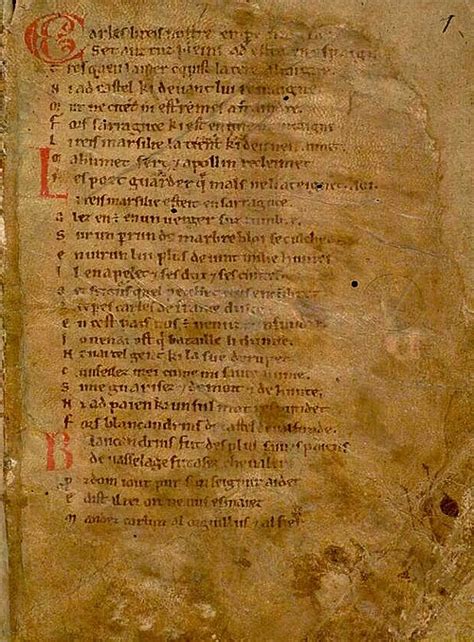 Carles li reis nostre emper
Set anz tuz pleins ad estet en espaigne
Tresqu en la mer cunquist la tere altaigne
N i ad castel ki devant lui remaigne
Mur ne citet n i est remes a fraindre
Fors sarraguce ki est en une muntaigne
Li reis marsilie la tient ki deu nen aimet
Mahumet sert ⁊ apollin recleimet
Nes poet guarder q̃ mals ne l i ateignet
Li reis marsilie esteit en sarraguce
Alez en est en un verger suz l umbre
Sur un perrun de marbre bloi se culchet
Envirun lui plus de vint milie humes
Il en apelet ⁊ ses dux ⁊ ses cuntes
quel pecchet nus encumbret
carles de france dulce
En cest pais nos venuz cunfundre
Io nen ai ost q̇ bataille li dunne
N ai tel gent ki la sue derumpet
Cunseilez mei cume mi saive hume
Si me guarisez ⁊ de mort ⁊ de hunte
N i ad paien ki un sul mot respundet
Fors blancandrins de castel de valfunde
Blancandrins fut des plus saives paiens
De vasselage fut asez chevaler
Prozdom i out pur sun seignur aider
E dist al rei or ne vus esmaiez
Mandez carlun al orguillus ⁊ al fier